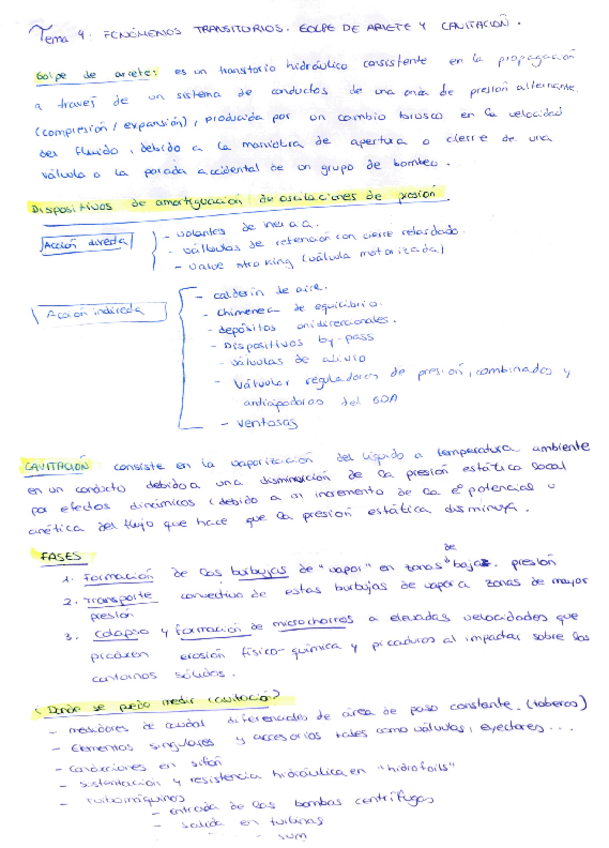 Tema 9: FENÓMENOS TRANSITORIOS. GOLPE DE ARIETE Y CAVITACIÓN.
Golpe de ariete: es un transitorio hidráulico consistente en la propagación
a través de un sistema de conductos de una onda de presión alternante
(compresión / expansión), producida por un cambio brusco en la velocidad
del fluido, debido a la maniobra de apertura o cierre de una
válvula o la parada accidental de un grupo de bombeo.
Dispositivos de amortiguación de oscilaciones de presión.
Acción directa
- volantes de inercia.
- válvulas de retención con cierre retardado.
- value stroking (válvula motorizada)
Acción indirecta
- calderín de aire.
- Chimenea de equilibrio.
- depósitos unidireccionales.
- Dispositivos by-pass
- válvulas de alivio
- Válvulas reguladores de presión, combinados y
anticipadoras del GDA
- ventosas
CAVITACIÓN consiste en la vaporización del líquido a temperatura ambiente
en un conducto debido a una disminución de la presión estática local
por efectos dinámicos (debido a un incremento de la eª potencial o
cinética del flujo que hace que la presión estática disminuya.
FASES
1. Formación de las burbujas de "vapor" en zonas de baja presión
2. Transporte convectivo de estas burbujas de vapor a zonas de mayor
presión
3. Colapso y formación de microchorros a elevadas velocidades que
producen erosión físico-química y picaduras al impactar sobre los
contornos sólidos.
¿Donde se puede medir cavitación?
- medidores de caudal diferenciales de área de paso constante. (toberas)
- Elementos singulares y accesorios tales como válvulas, eyectores...
- Conducciones en sifón
- Sustentación y resistencia hidráulica en "hidrofoils"
- Turbomáquinas
- entrada de las bombas centrífugas
- salida en turbinas